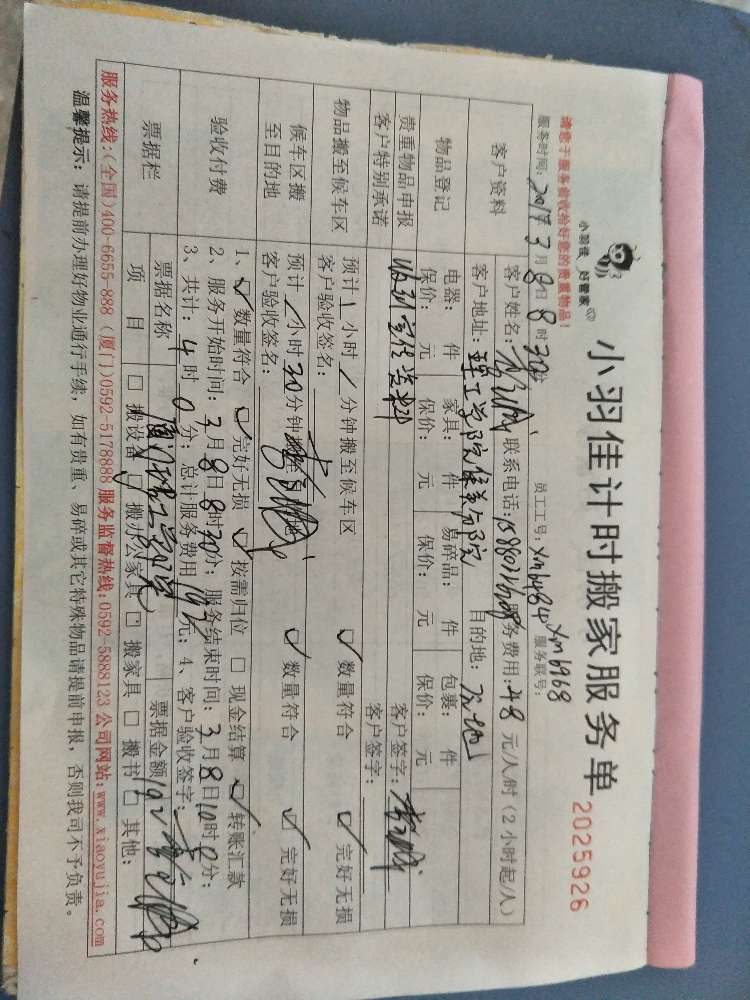 小羽佳 好管家
小羽佳计时搬家服务单
2025926
请您于服务前收拾好您的贵重物品！
服务时间：2017年3月8日8时30分 员工工号：xm6484 xm6968 服务联号：
客户资料
客户姓名： 联系电话： 服务费用：48元/人/时（2小时起/人）
客户地址：理工学院集美分院 目的地：
物品登记
电器： 件 家具： 件 易碎品： 件 包裹： 件
保价： 元 保价： 元 保价： 元 保价： 元
贵重物品申报 客户签字：
客户特别承诺 客户签字：
物品搬至候车区
预计1小时/分钟搬至候车区 ☑ 数量符合 ☑ 完好无损
客户验收签名：
候车区搬至目的地
预计/小时30分钟搬至目的地 ☑ 数量符合 ☑ 完好无损
客户验收签名：
验收付费
1、☑ 数量符合 ☑ 完好无损 ☑ 按需归位 □ 现金结算 ☑ 转账汇款
2、服务开始时间：3月8日8时30分；服务结束时间：3月8日10时 分；
3、共计：4时0分；总计服务费用192元；4、客户验收签字：
票据栏
票据名称 票据金额192
项 目 □ 搬设备 □ 搬办公家具 □ 搬家具 □ 搬书 □ 其他：
服务热线：(全国)400-6655-888 (厦门)0592-5178888 服务监督热线：0592-5888123 公司网站：www.xiaoyujia.com
温馨提示：请提前办理好物业通行手续，如有贵重、易碎或其它特殊物品请提前申报，否则我司不予负责。